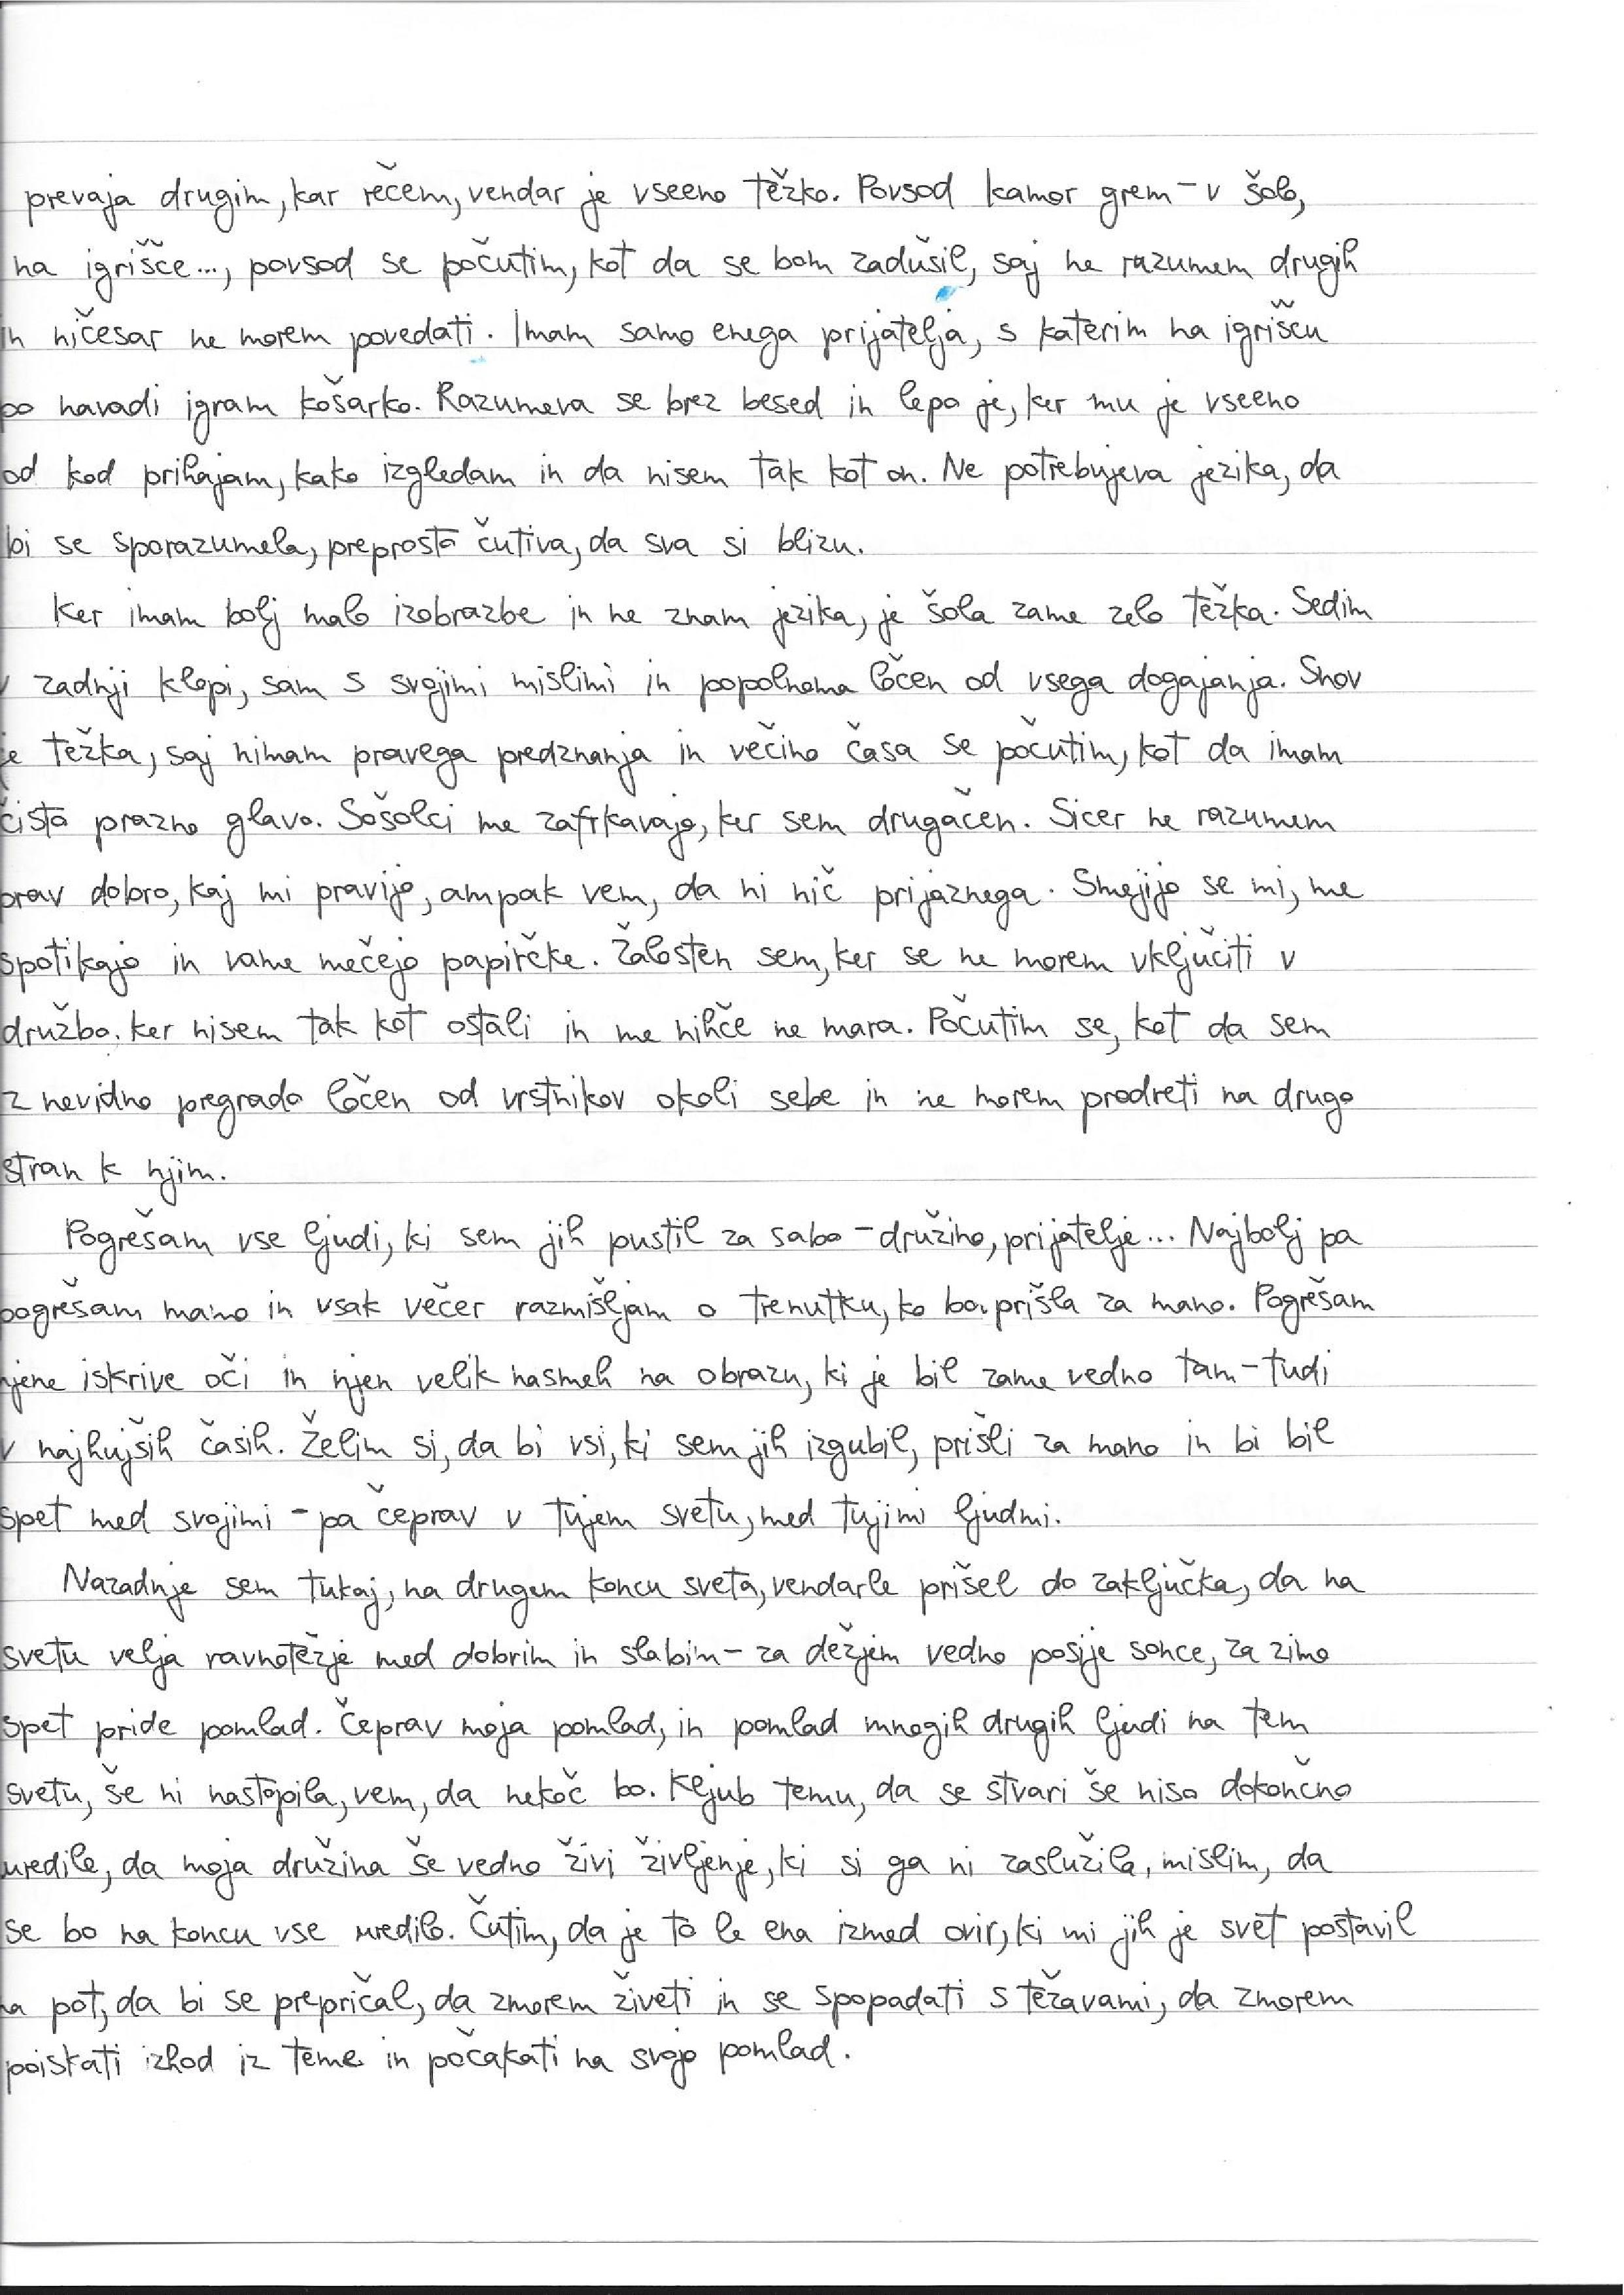 prevaja drugim, kar rečem, vendar je vseeno težko. Povsod kamor grem - v šolo,
na igrišče..., povsod se počutim, kot da se bom zadušil, saj ne razumem drugih
in ničesar ne morem povedati. Imam samo enega prijatelja, s katerim na igrišču
po navadi igram košarko. Razumeva se brez besed in lepo je, ker mu je vseeno
od kod prihajam, kako izgledam in da nisem tak kot on. Ne potrebujeva jezika, da
bi se sporazumela, preprosto čutiva, da sva si blizu.
Ker imam bolj malo izobrazbe in ne znam jezika, je šola zame zelo težka. Sedim
v zadnji klopi, sam s svojimi mislimi in popolnoma ločen od vsega dogajanja. Snov
je težka, saj nimam pravega predznanja in večino časa se počutim, kot da imam
čisto prazno glavo. Sošolci me zafrkavajo, ker sem drugačen. Sicer ne razumem
prav dobro, kaj mi pravijo, ampak vem, da ni nič prijaznega. Smejijo se mi, me
spotikajo in vame mečejo papirčke. Žalosten sem, ker se ne morem vključiti v
družbo. ker nisem tak kot ostali in me nihče ne mara. Počutim se, kot da sem
z nevidno pregrado ločen od vrstnikov okoli sebe in ne morem prodreti na drugo
stran k njim.
Pogrešam vse ljudi, ki sem jih pustil za sabo - družino, prijatelje... Najbolj pa
pogrešam mamo in vsak večer razmišljam o trenutku, ko bo prišla za mano. Pogrešam
njene iskrive oči in njen velik nasmeh na obrazu, ki je bil zame vedno tam - tudi
v najhujših časih. Želim si, da bi vsi, ki sem jih izgubil, prišli za mano in bi bil
spet med svojimi - pa čeprav v tujem svetu, med tujimi ljudmi.
Nazadnje sem tukaj, na drugem koncu sveta, vendarle prišel do zaključka, da na
svetu velja ravnotežje med dobrim in slabim - za dežjem vedno posije sonce, za zimo
spet pride pomlad. Čeprav moja pomlad, in pomlad mnogih drugih ljudi na tem
svetu, še ni nastopila, vem, da nekoč bo. Kljub temu, da se stvari še niso dokončno
uredile, da moja družina še vedno živi življenje, ki si ga ni zaslužila, mislim, da
se bo na koncu vse uredilo. Čutim, da je to le ena izmed ovir, ki mi jih je svet postavil
na pot, da bi se prepričal, da zmorem živeti in se spopadati s težavami, da zmorem
poiskati izhod iz teme in počakati na svojo pomlad.